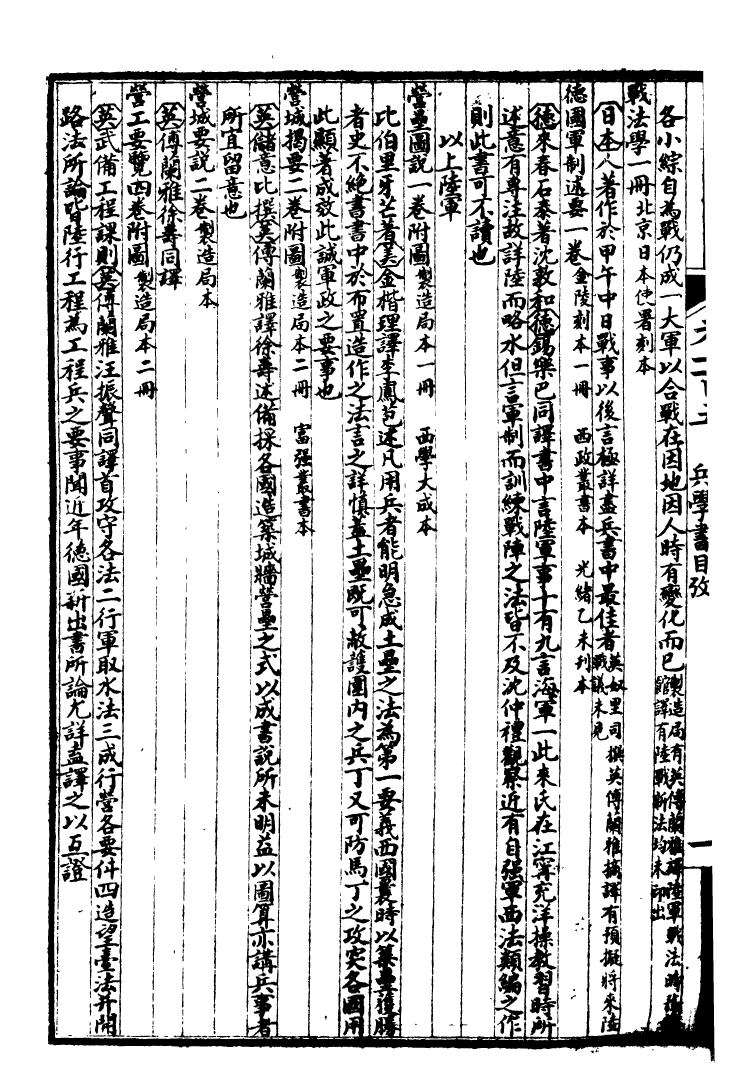 兵學書目攷
各小綜自為戰仍成一大軍以合戰在因地因人時有變化而已製造局有英傅蘭雅譯陸軍戰法
館譯有陸戰新法均未印出
戰法學一冊北京日本使署刻本
日本人著作於甲午中日戰事以後言極詳盡兵書中最佳者英奴里司撰英傅蘭雅摘譯有預擬將來陸
戰議未見
德國軍制述要一卷金陵刻本一冊 西政叢書本 光緒乙未刊本
德來春石泰著沈敦和德錫樂巴同譯書中言陸軍事十有九言海軍一此來氏在江寧充洋操教習時所
述意有專注故詳陸而略水但言軍制而訓練戰陣之法皆不及沈仲禮觀察近有自强軍西法類編之作
則此書可不讀也
以上陸軍
營壘圖說一卷附圖製造局本一冊 西學大成本
比伯里牙芒著美金楷理譯李鳳苞述凡用兵者能明急成土壘之法為第一要義西國曩時以築壘獲勝
者史不絕書書中於布置造作之法言之詳慎蓋土壘既可敝護圍內之兵丁又可防馬丁之攻突各國用
此顯著成效此誠軍政之要事也
營城揭要二卷附圖製造局本二冊 富强叢書本
英儲意比撰英傅蘭雅譯徐壽述備採各國造築城牆營壘之式以成書說所未明益以圖算亦講兵事者
所宜留意也
營城要說二卷製造局本
英傅蘭雅徐壽同譯
營工要覽四卷附圖製造局本二冊
英武備工程課則英傅蘭雅汪振聲同譯首攻守各法二行軍取水法三成行營各要件四造望臺法并開
路法所論皆陸行工程為工程兵之要事聞近年德國新出書所論尤詳盍譯之以互證